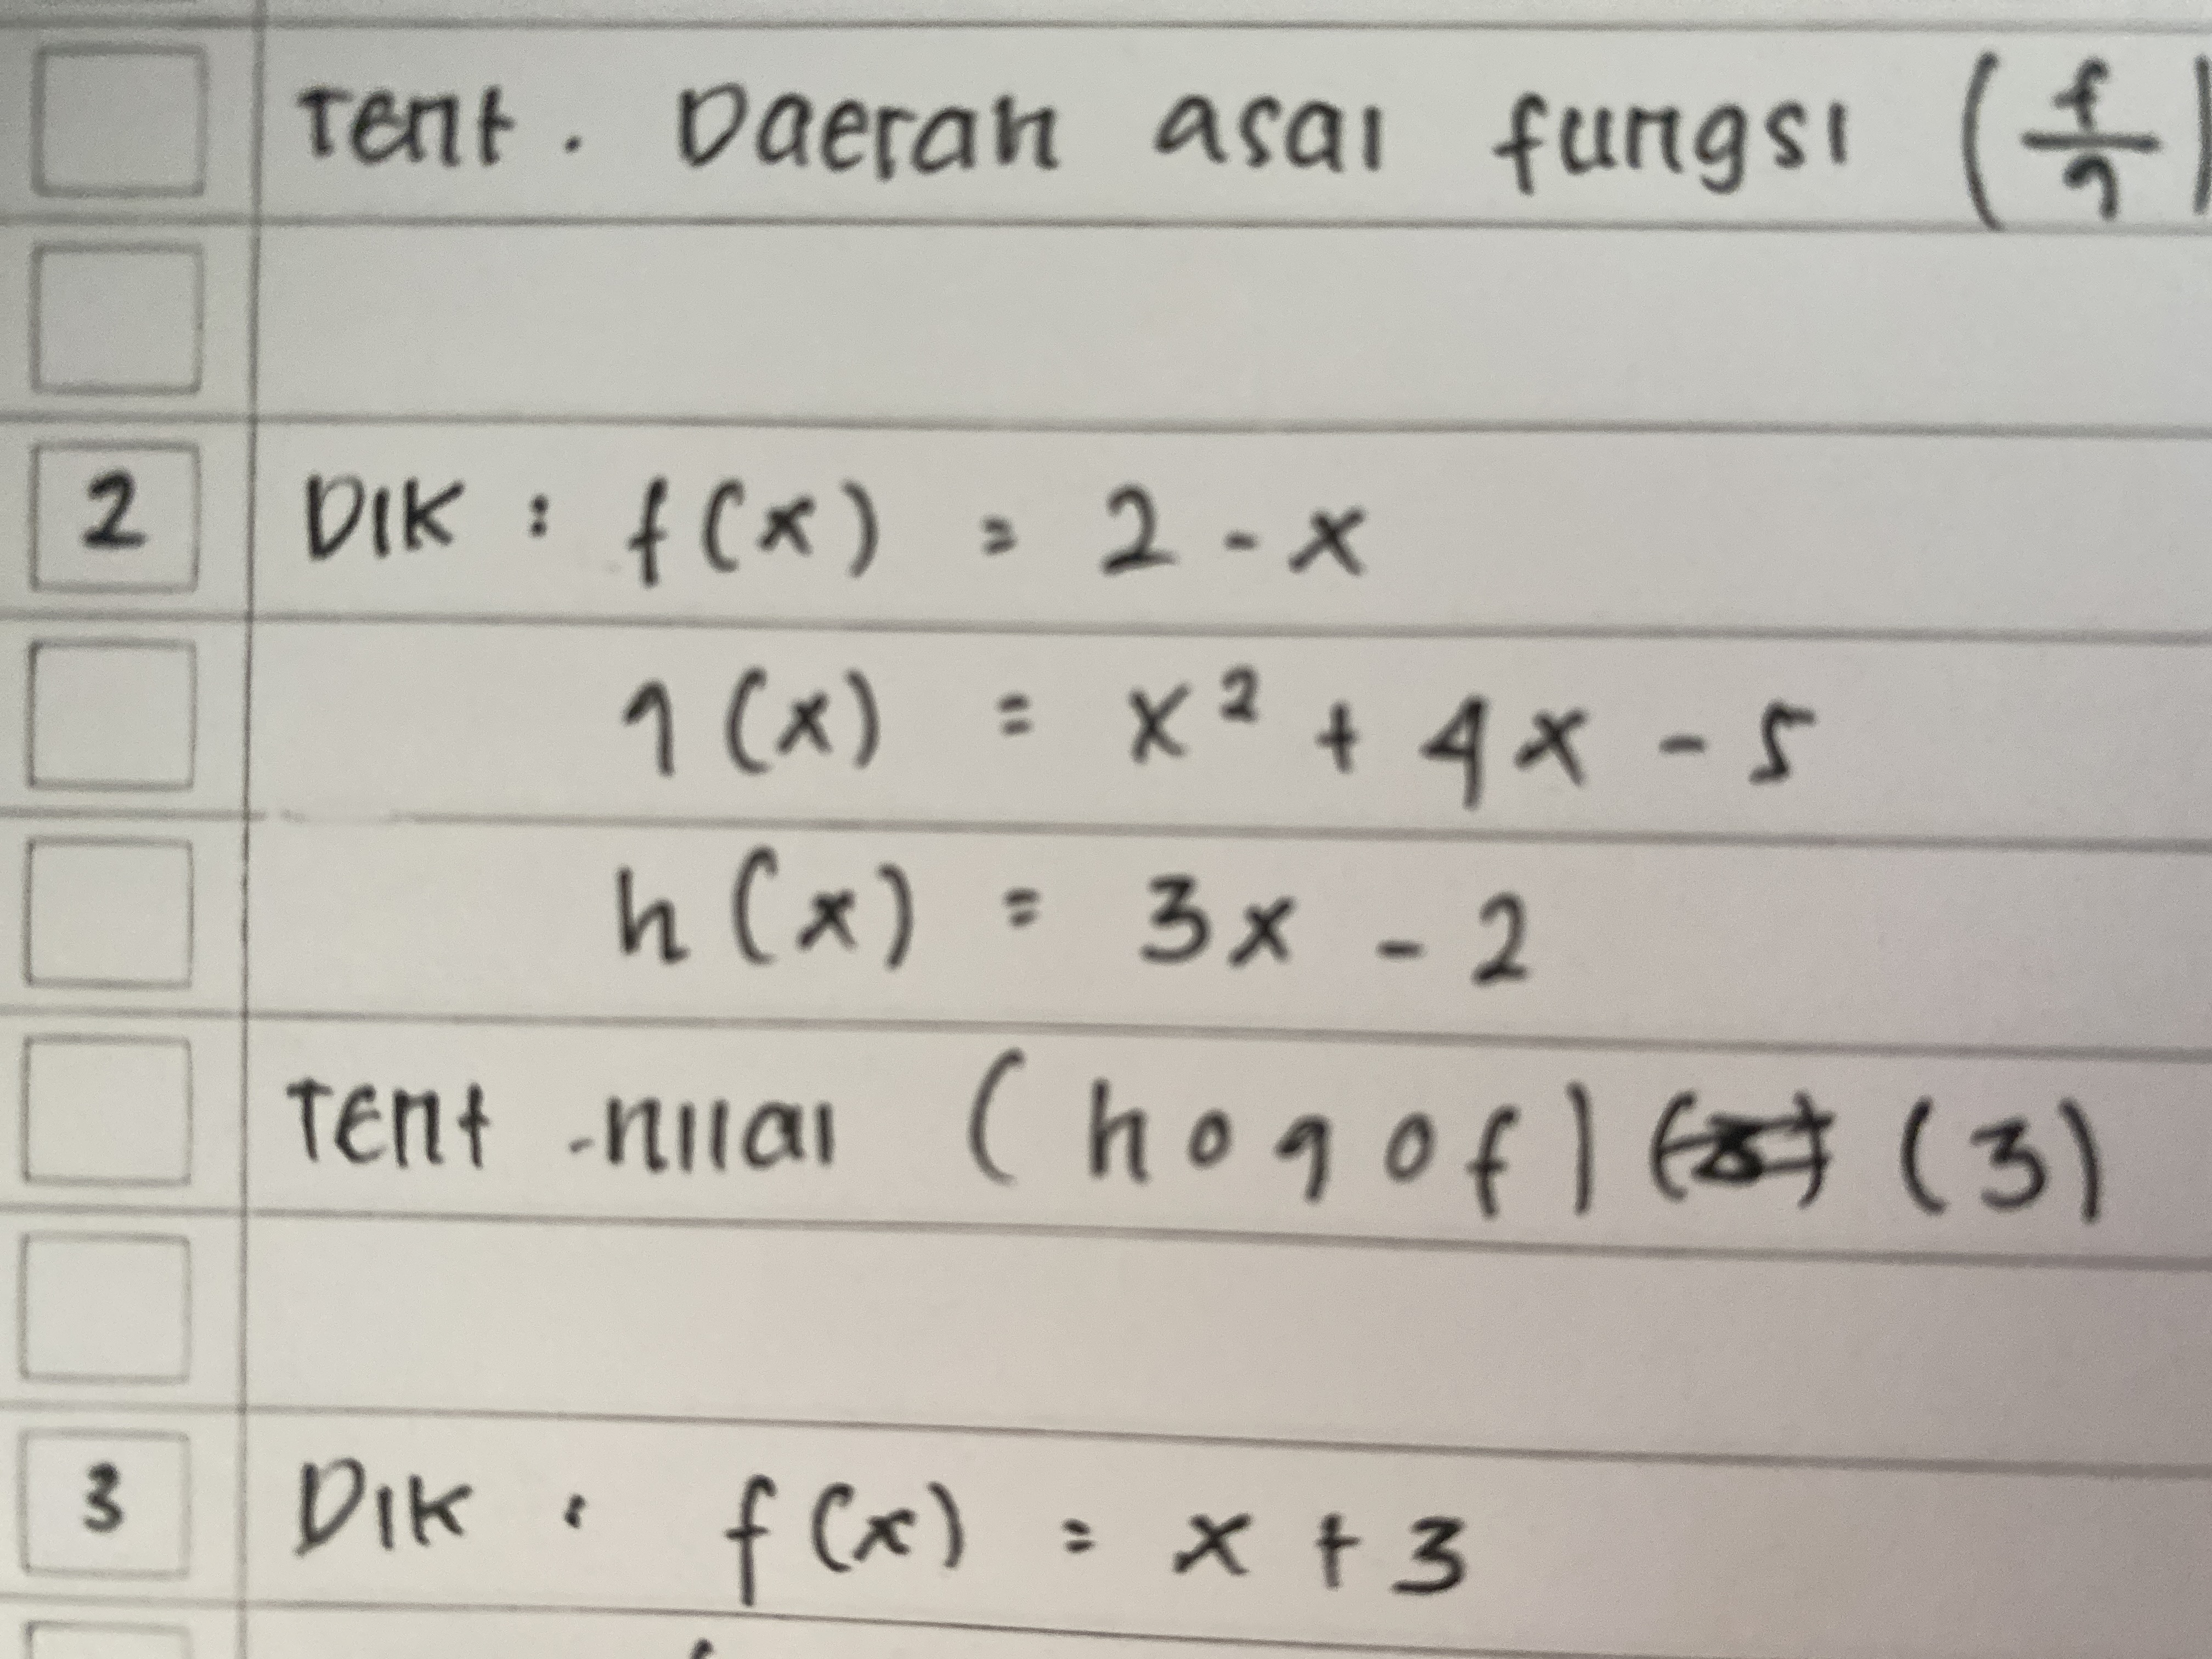 Tent. Daerah asal fungsi (f/g)
2 DIK : f(x) = 2 - x
g(x) = x² + 4x - 5
h(x) = 3x - 2
Tent. nilai (h o g o f) (3)
3 DIK : f(x) = x + 3